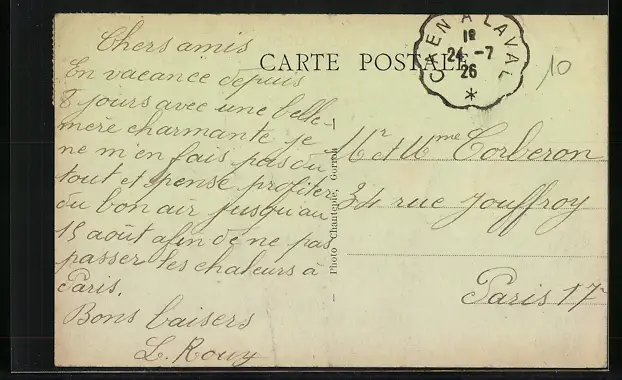 Chers amis
En vacance depuis
8 jours avec une belle-
mère charmante je
ne m'en fais pas du
tout et pense profiter
du bon air jusqu'au
15 août afin de ne pas
passer les chaleurs à
Paris.
Bons baisers
L. Rouy
CARTE POSTALE
CAEN A LAVAL
1º
24 -7
26
*
10
Photo Chantepie, Gorron
Mr et Mme Corberon
34 rue Jouffroy
Paris 17e